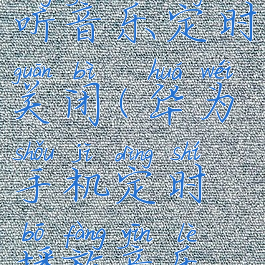 听音乐定时
guān bì huá wéi
关闭(华为
shǒu jī dìng shí
手机定时
bō fàng yīn lè
播放音乐